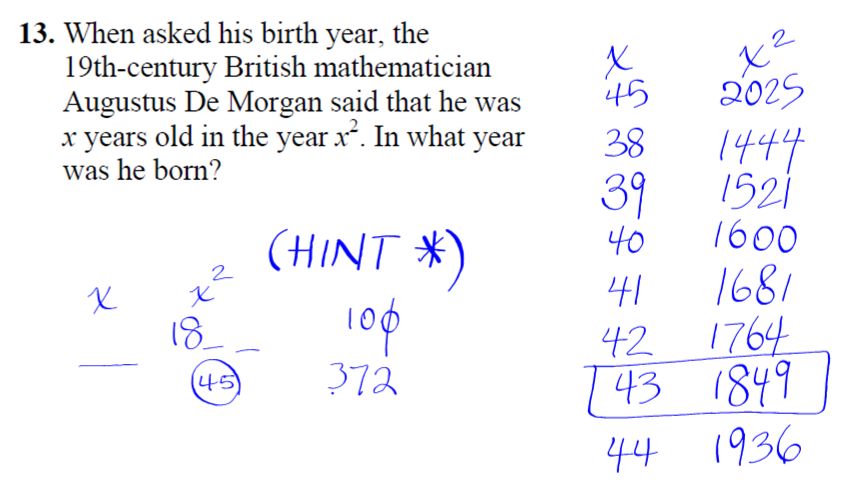 13. When asked his birth year, the
19th-century British mathematician
Augustus De Morgan said that he was
x years old in the year x². In what year
was he born?
(HINT *)
x x²
18_ _
45
10φ
372
x x²
45 2025
38 1444
39 1521
40 1600
41 1681
42 1764
43 1849
44 1936